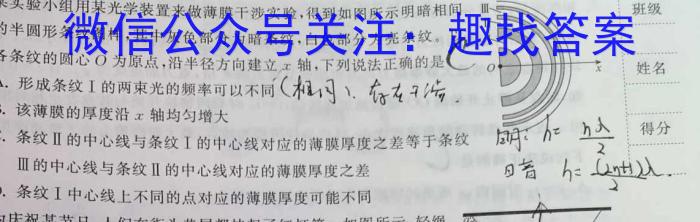 实验小组用某光学装置来做薄膜干涉实验,得到如图所示明暗相间
Ⅲ
班级
微信公众号关注:趣找答案
的半圆形条纹
条纹的圆心O为原点,沿半径方向建立x轴,下列说法正确的是
O
x
姓名
形成条纹Ⅰ的两束光的频率可以不同
(相同)、存在干涉.
该薄膜的厚度沿x轴均匀增大
得分
条纹Ⅱ的中心线与条纹Ⅰ的中心线对应的薄膜厚度之差等于条纹
h=nλ/2
Ⅲ的中心线与条纹Ⅱ的中心线对应的薄膜厚度之差
h=(2n+1)λ/2.
条纹Ⅰ中心线上不同的点对应的薄膜厚度可能不同